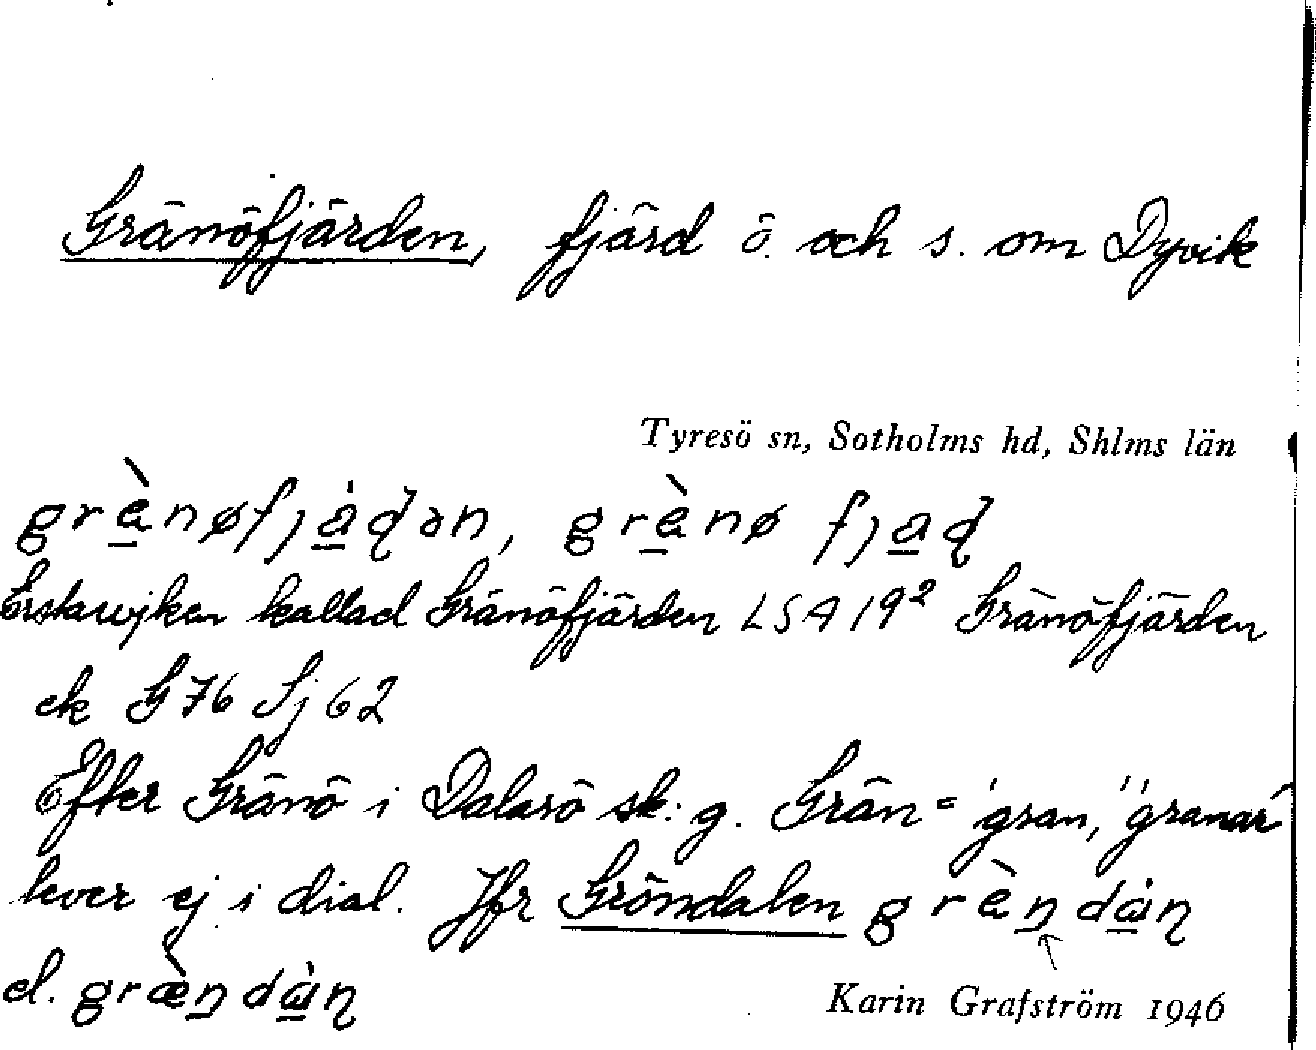 Gränöfjärden, fjärd ö. och s. om Dyvik
Tyresö sn, Sotholms hd, Shlms län
grènøfjàɖən, grènø fjaɖ
Erstawjken kallad Gränöfjärden LSA 19² Gränöfjärden
ek G76 Sj 62
Efter Gränö i Dalarö sk: g. Grän= 'gran,' 'granar'
lever ej i dial. Jfr Gröndalen grèn dàɳ
el. græ̀n dàɳ
Karin Grafström 1946